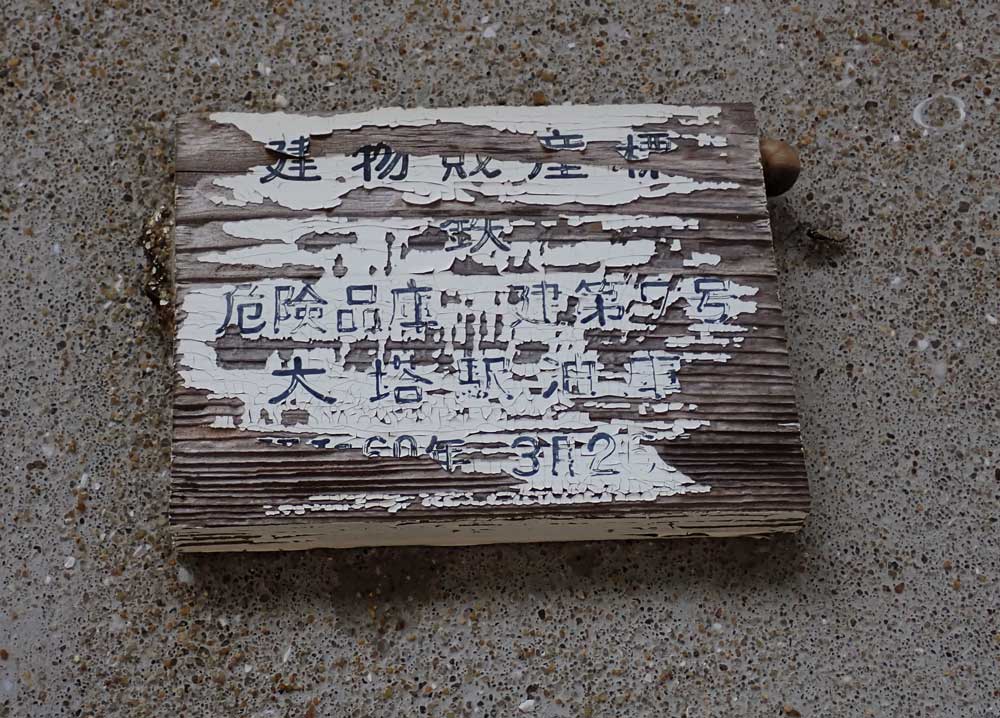 建物財産標
鉄
危険品庫 建第7号
大塔駅油庫
60年 3月2